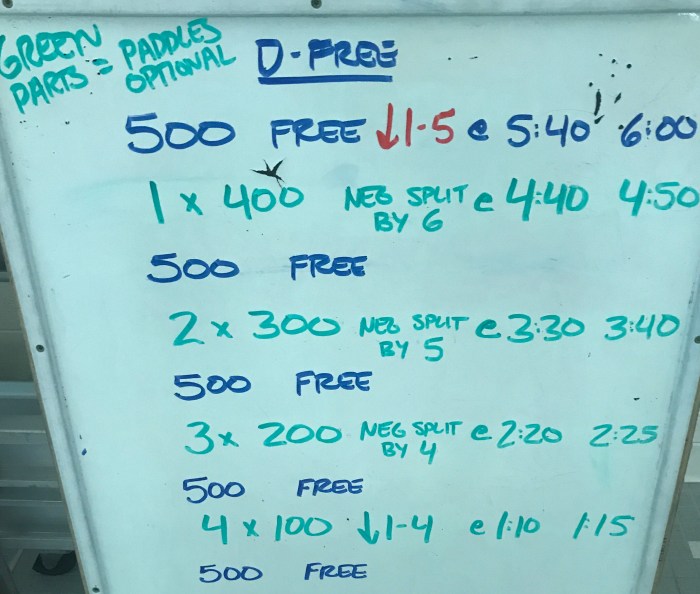 GREEN PARTS = PADDLES OPTIONAL
D-FREE
500 FREE ↓1-5 @ 5:40 6:00
1 x 400 NEG SPLIT BY 6 @ 4:40 4:50
500 FREE
2 x 300 NEG SPLIT BY 5 @ 3:30 3:40
500 FREE
3 x 200 NEG SPLIT BY 4 @ 2:20 2:25
500 FREE
4 x 100 ↓1-4 @ 1:10 1:15
500 FREE